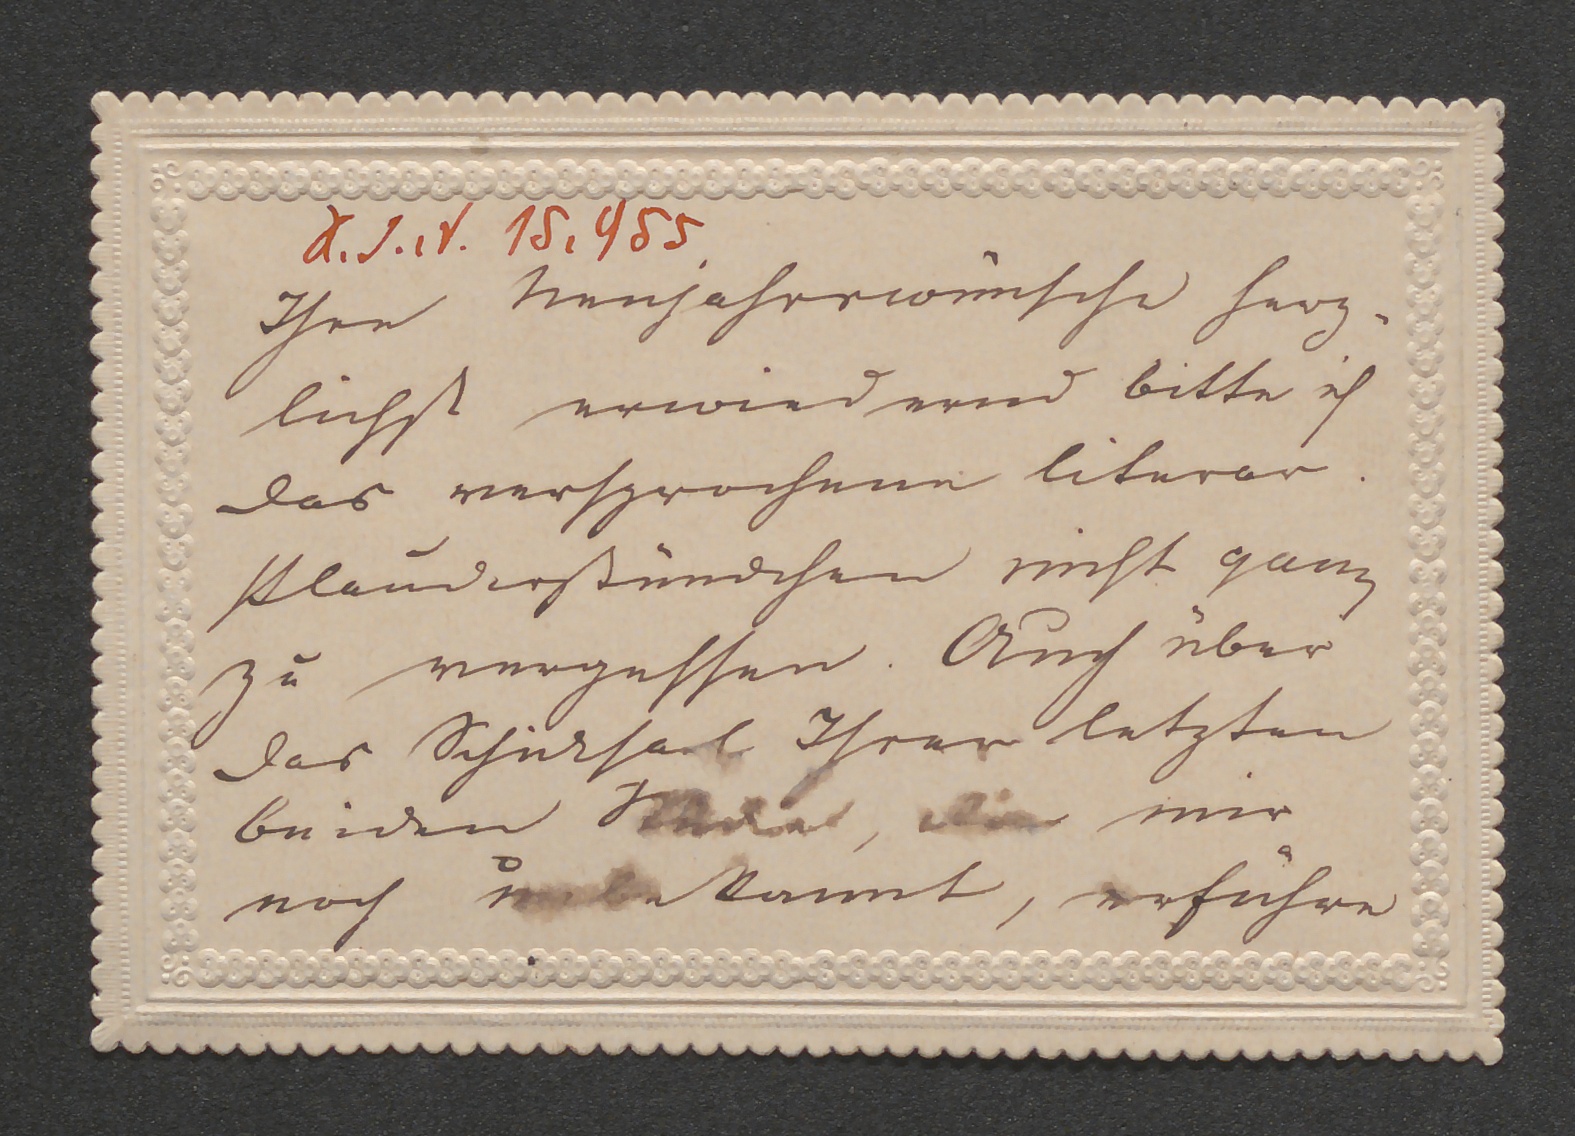 H.I.N. 15.955
Ihre Neujahrswünsche herz-
lichst erwiedernd bitte ich
das versprochene literar.
Plauderstündchen nicht ganz
zu vergessen. Auch über
das Schicksal Ihrer letzten
beiden , die mir
noch unbekannt, erführe